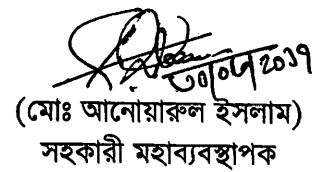 ৩০/০৫/২০১৭
(মোঃ আনোয়ারুল ইসলাম)
সহকারী মহাব্যবস্থাপক